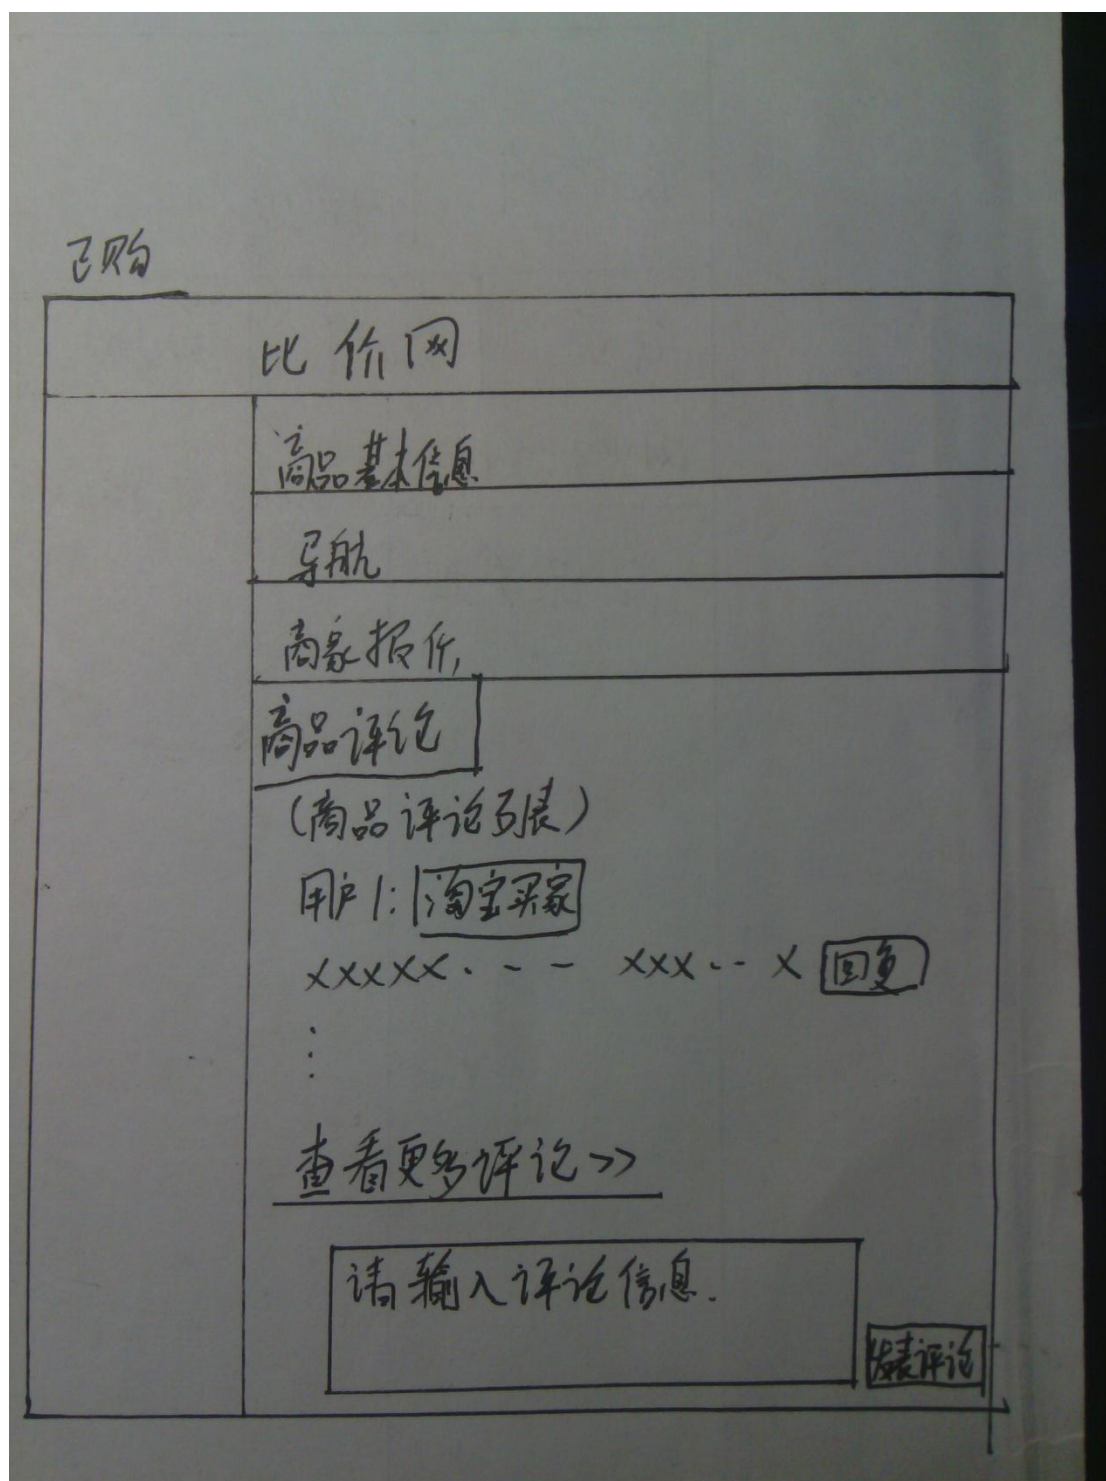 已购
比价网
商品基本信息
导航
商家报价
商品评论
(商品评论列表)
用户1: 淘宝买家
xxxxx·-- xxx--x 回复
⋮
查看更多评论>>
请输入评论信息.
发表评论